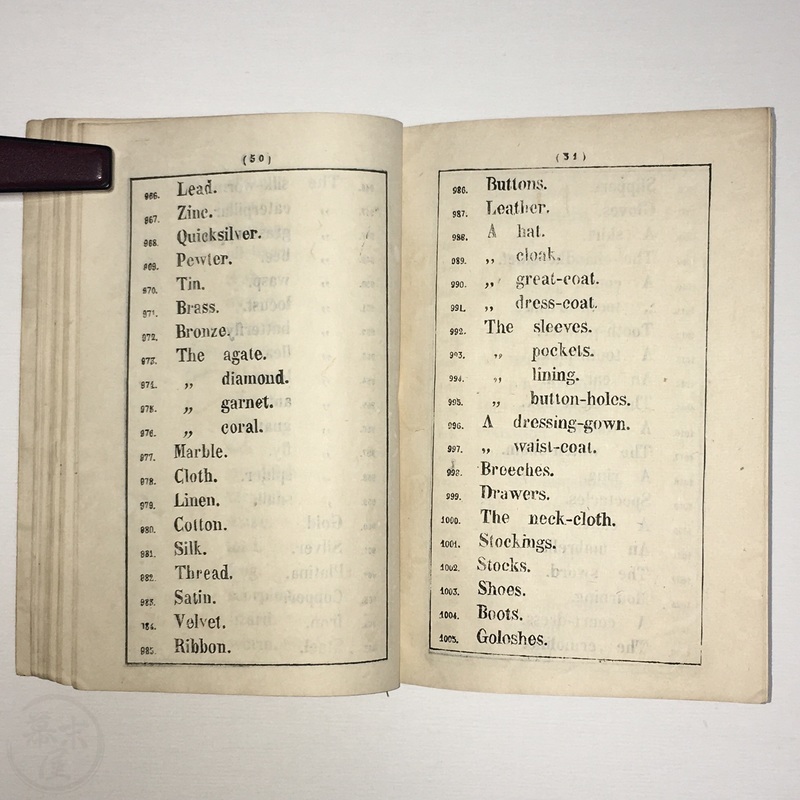 (50)
966. Lead.
967. Zinc.
968. Quicksilver.
969. Pewter.
970. Tin.
971. Brass.
972. Bronze.
973. The agate.
974. „ diamond.
975. „ garnet.
976. „ coral.
977. Marble.
978. Cloth.
979. Linen.
980. Cotton.
981. Silk.
982. Thread.
983. Satin.
984. Velvet.
985. Ribbon.
(51)
986. Buttons.
987. Leather.
988. A hat.
989. „ cloak.
990. „ great-coat.
991. „ dress-coat.
992. The sleeves.
993. „ pockets.
994. „ lining.
995. „ button-holes.
996. A dressing-gown.
997. „ waist-coat.
998. Breeches.
999. Drawers.
1000. The neck-cloth.
1001. Stockings.
1002. Stocks.
1003. Shoes.
1004. Boots.
1005. Goloshes.